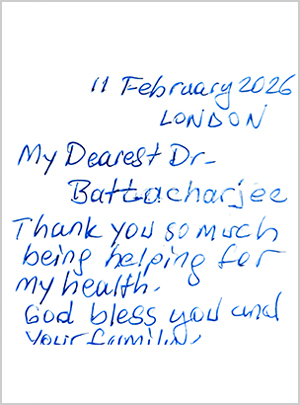 11 February 2026
LONDON
My Dearest Dr-
Battacharjee
Thank you so much
being helping for
my health.
God bless you and
your family.